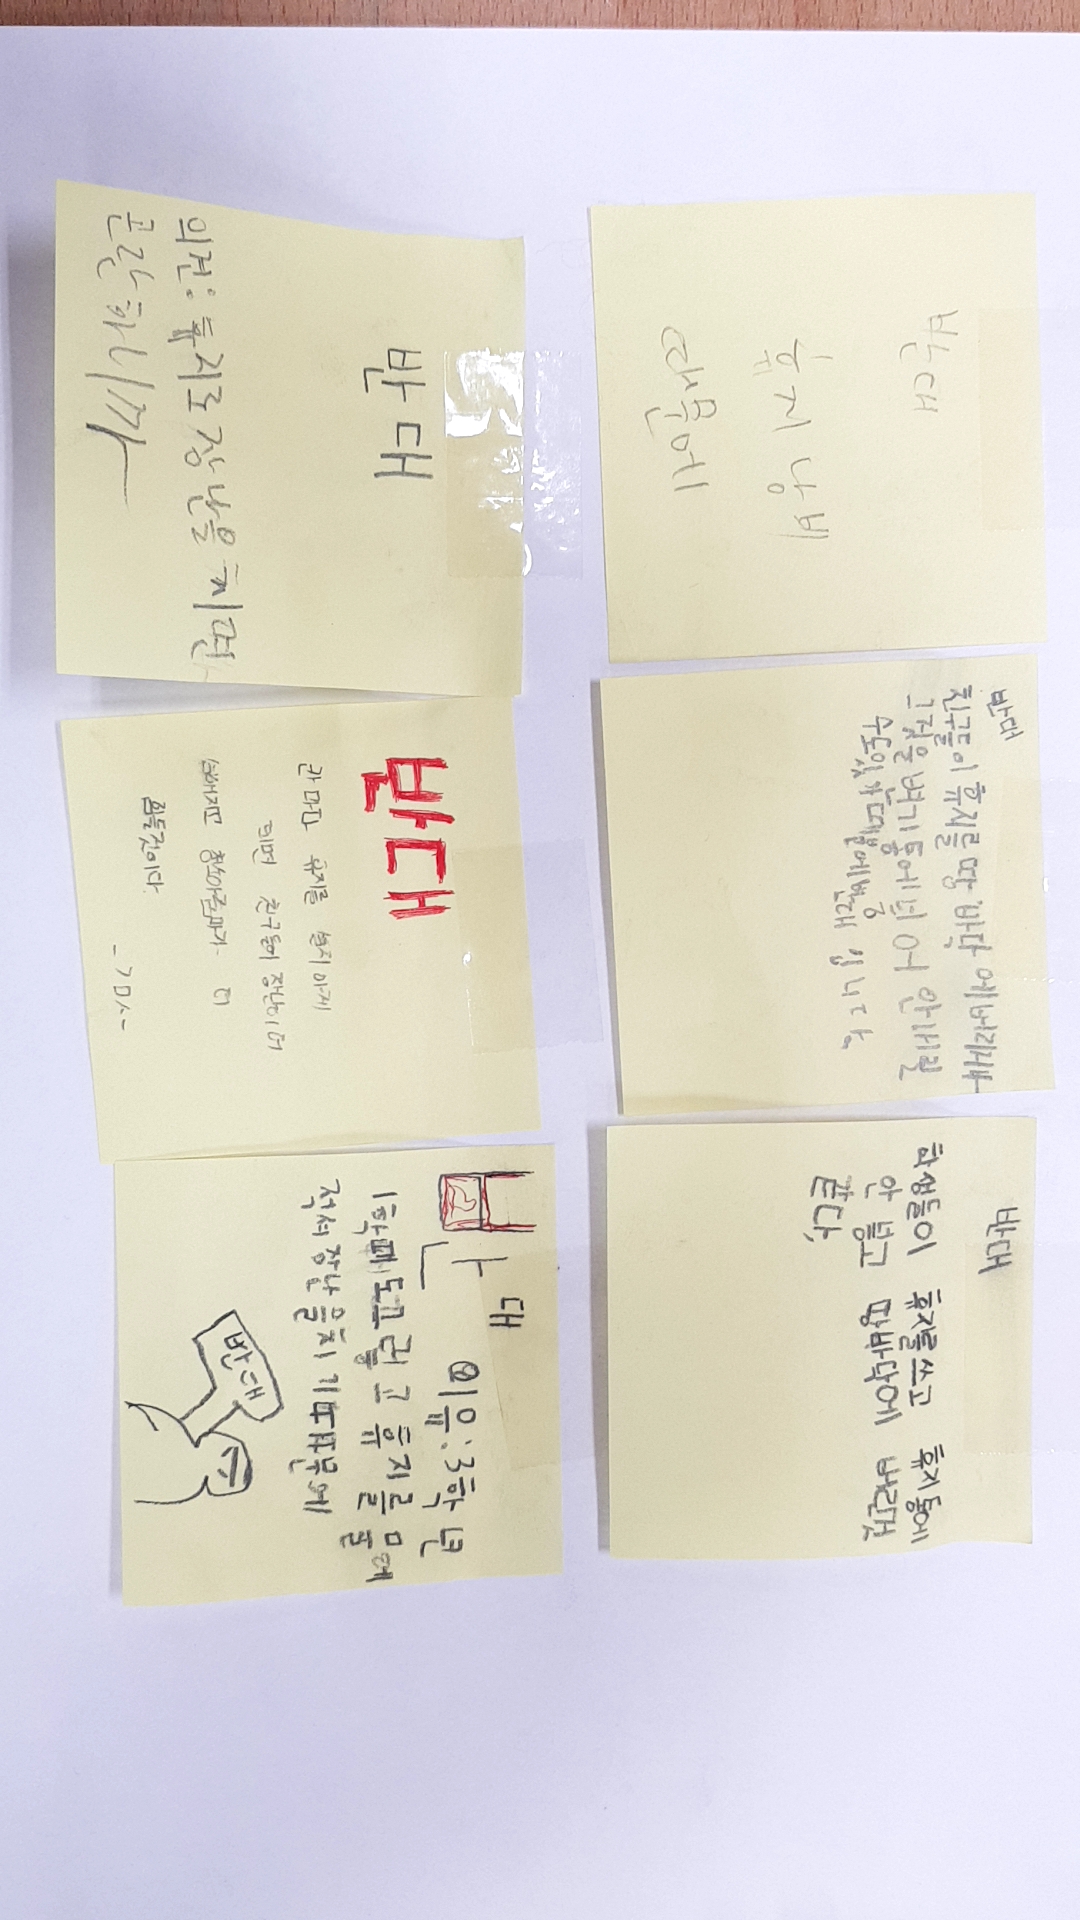 반대
휴지 낭비
때문이
반대
친구들이 휴지를 땅 바닥에 버리거나
그걸로 변기통에 넣어 안 내려질
수도 있기 때문에 반대 입니다.
반대
학생들이 휴지를 쓰고 휴지통에
안 넣고 땅바닥에 버린것
같다.
반대
의견: 휴지로 장난을 치면
곤란하니까
반대
칸마다 휴지를 설치하게
되면 친구들이 장난이 더
심해지면 청소아줌마가 더
힘들 것이다.
반
대
이유: 3학년
1학기때도 그러고 휴지를 물에
적셔 장난을 치기 때문에
반대